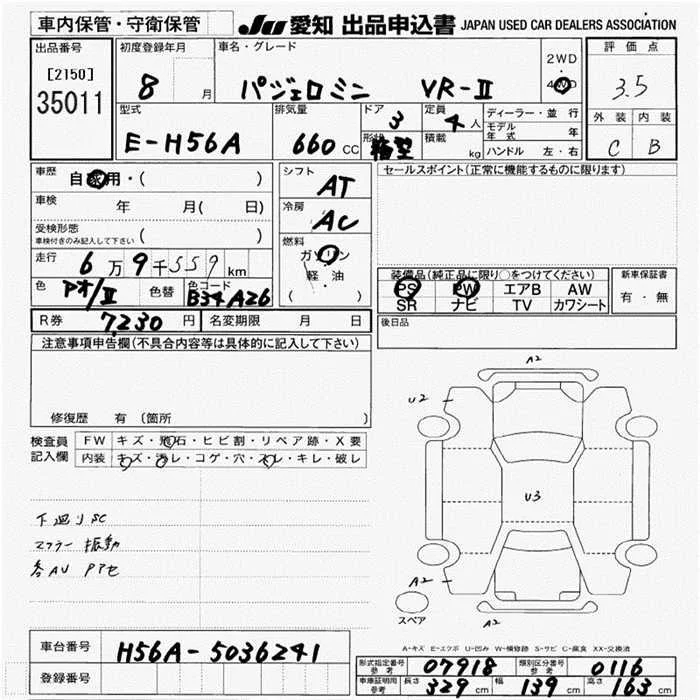 車内保管・守衛保管
JU 愛知 出品申込書 JAPAN USED CAR DEALERS ASSOCIATION
出品番号
[2150]
35011
初度登録年月
8 月
車名・グレード
パジェロミニ VR-II
2WD
4WD
評価点
3.5
外装 内装
C B
型式
E-H56A
排気量
660 cc
ドア
3
形状
箱型
定員
4 人
積載
kg
ディーラー・並行
モデル年式 年
ハンドル 左・右
車歴
自家用・( )
車検
年 月( 日)
受検形態
車検付きのみ記入して下さい
走行
6万9千559 km
色
アオ/II
色替
色コード
B34A26
シフト
AT
冷房
AC
燃料
ガソリン
軽・油
( )
セールスポイント(正常に機能するものに限ります)
装備品(純正品に限り○をつけてください)
PS PW エアB AW
SR ナビ TV カワシート
新車保証書
有・無
後日品
R券 7,230 円
名変期限 月 日
注意事項申告欄(不具合内容等は具体的に記入して下さい)
修復歴 有 (箇所 )
検査員記入欄
FW キズ・飛石・ヒビ割・リペア跡・X要
内装 キズ・汚レ・コゲ・穴・スレ・キレ・破レ
下廻りSC
マフラー振動
A2
U2
U3
A2
A2
スペア
A-キズ E-エクボ U-凹み W-補修跡 S-サビ C-腐食 XX-交換済
車台番号 H56A-5036241
登録番号
形式指定番号 参考 07918
類別区分番号 参考 0116
車庫証明用 参考 長さ 329 cm 幅 139 cm 高さ 163 cm